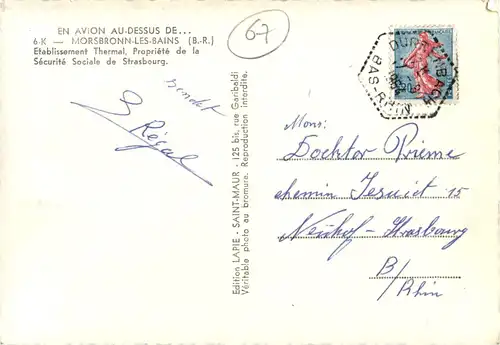 EN AVION AU-DESSUS DE...
6-K — MORSBRONN-LES-BAINS (B.-R.)
Etablissement Thermal, Propriété de la
Sécurité Sociale de Strasbourg.
67
Edition LAPIE - SAINT-MAUR - 125 bis, rue Garibaldi
Véritable photo au bromure. Reproduction interdite.
BAS-RHIN
Mons:
Docktor Prieme
chemin Jesuict 15
Neuhof-Strasbourg
B/
Rhin